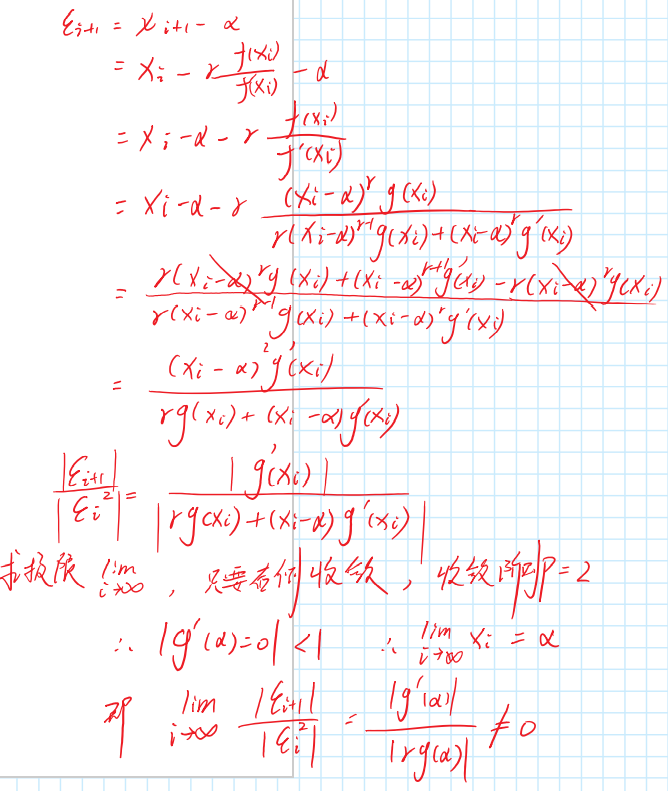 ε_{i+1} = x_{i+1} - α
= x_i - r \frac{f(x_i)}{f'(x_i)} - α
= x_i - α - r \frac{f(x_i)}{f'(x_i)}
= x_i - α - r \frac{(x_i-α)^r g(x_i)}{r(x_i-α)^{r-1} g(x_i) + (x_i-α)^r g'(x_i)}
= \frac{r(x_i-α)^r g(x_i) + (x_i-α)^{r+1} g'(x_i) - r(x_i-α)^r g(x_i)}{r(x_i-α)^{r-1} g(x_i) + (x_i-α)^r g'(x_i)}
= \frac{(x_i-α)^2 g'(x_i)}{r g(x_i) + (x_i-α) g'(x_i)}
\frac{|ε_{i+1}|}{|ε_i^2|} = \frac{|g'(x_i)|}{|r g(x_i) + (x_i-α) g'(x_i)|}
求极限 \lim_{i→∞} , 只要 收敛 , 收敛阶 P=2
∴ |g'(α)=0| <1 ∴ \lim_{i→∞} x_i = α
即 \lim_{i→∞} \frac{|ε_{i+1}|}{|ε_i^2|} = \frac{|g'(α)|}{|r g(α)|} ≠ 0